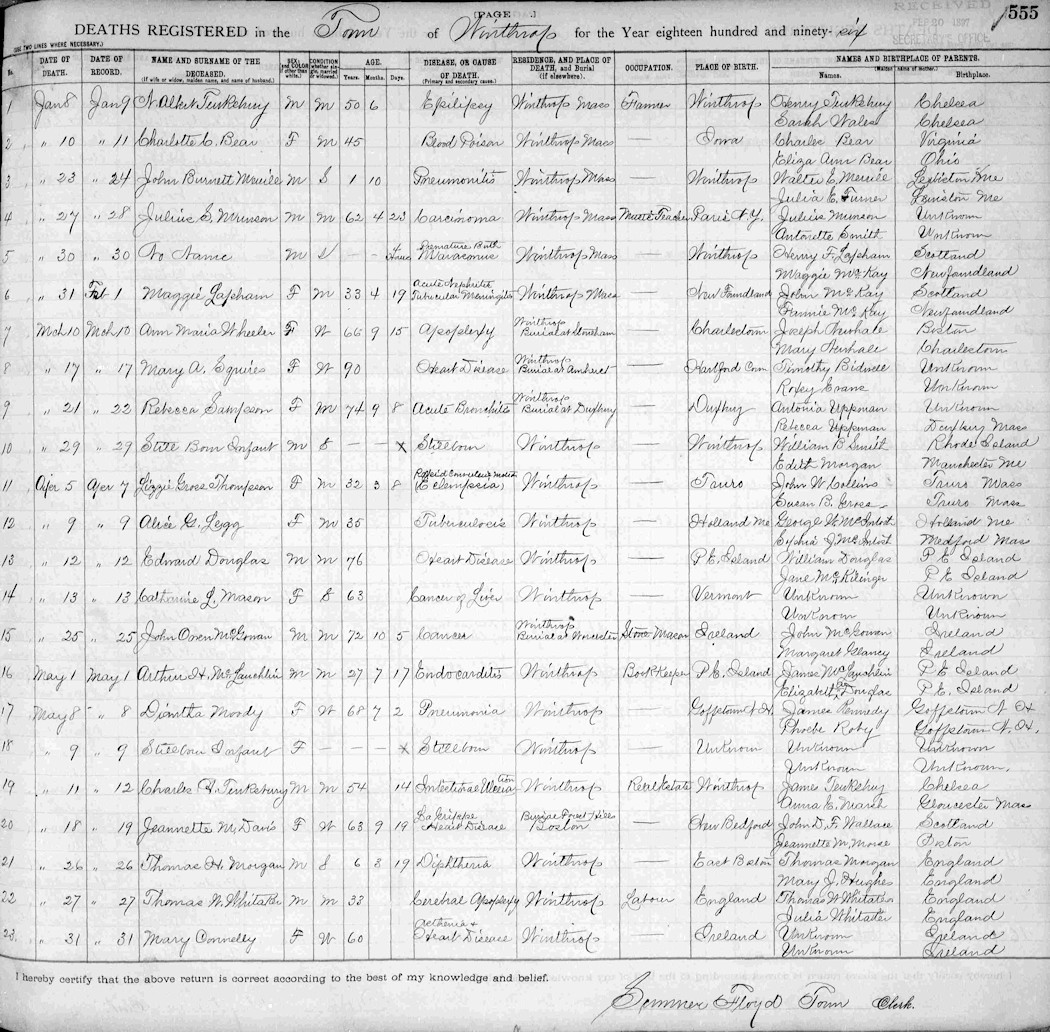 [PAGE .] 555
RECEIVED
FEB 20 1897
SECRETARY'S OFFICE
DEATHS REGISTERED in the Town of Winthrop for the Year eighteen hundred and ninety-six
(USE TWO LINES WHERE NECESSARY.)
No. DATE OF DEATH. DATE OF RECORD. NAME AND SURNAME OF THE DECEASED. (If wife or widow, maiden name, and name of husband.) SEX, and COLOR (if other than white.) CONDITION whether single, married or widowed. AGE. Years. Months. Days. DISEASE, OR CAUSE OF DEATH. (Primary and secondary cause.) RESIDENCE, AND PLACE OF DEATH, and Burial (if elsewhere). OCCUPATION. PLACE OF BIRTH. NAMES AND BIRTHPLACE OF PARENTS. (Maiden name of mother.) Names. Birthplace.
1 Jan 8 Jan 9 N. Albert Tewksbury M M 50 6 Epilipsy Winthrop Mass Farmer Winthrop Henry Tewksbury Chelsea
Sarah Wales Chelsea
2 " 10 " 11 Charlotte C. Bear F M 45 Blood Poison Winthrop Mass — Iowa Charles Bear Virginia
Eliza Ann Bear Ohio
3 " 23 " 24 John Burnett Merrill M S 1 10 Pneumonitis Winthrop Mass — Winthrop Walter E. Merrill Lewiston Me
Julia E. Turner Lewiston Me
4 " 27 " 28 Julius S. Munson M M 62 4 23 Carcinoma Winthrop Mass Music Teacher Paris N.Y. Julius Munson Unknown
Antonette Smith Unknown
5 " 30 " 30 No Name M S — — 4 hours Premature Birth Marasmus Winthrop Mass — Winthrop Henry F. Lapham Scotland
Maggie McKay Newfoundland
6 " 31 Feb 1 Maggie Lapham F M 33 4 19 Acute Nephritis Tubercular Meningitis Winthrop Mass — New Foundland John McKay Scotland
Fannie McKay Newfoundland
7 Mch 10 Mch 10 Ann Maria Wheeler F W 66 9 15 Apoplexy Winthrop Burial at Stoneham — Charlestown Joseph Newhale Boston
Mary Newhale Charlestown
8 " 17 " 17 Mary A. Squires F W 90 Heart Disease Winthrop Burial at Amherst — Hartford Conn Timothy Bidwell Unknown
Roxey Evans Unknown
9 " 21 " 22 Rebecca Sampson F M 74 9 8 Acute Bronchitis Winthrop Burial at Duxbury — Duxbury Antonia Uppman Unknown
Rebecca Uppman Duxbury Mass
10 " 29 " 29 Still Born Infant M S — — x Stillborn Winthrop — Winthrop William B. Smith Rhode Island
Edith Morgan Manchester Me
11 Apr 5 Apr 7 Lizzie Gross Thompson F M 32 3 8 (Eclempsia) Winthrop — Truro John W. Collins Truro Mass
Susan B. Gross Truro Mass
12 " 9 " 9 Alice G. Legg F M 35 Tuburculocis Winthrop — Holland Me George W. McIntosh Holland Me
Sophia J. McIntosh Medford Mass
13 " 12 " 12 Edward Douglas M M 76 Heart Disease Winthrop — P E Island William Douglas P E Island
Jane P E Island
14 " 13 " 13 Catharine L. Mason F S 63 Cancer of Liver Winthrop — Vermont Unknown Unknown
Unknown Unknown
15 " 25 " 25 John Owen McGowan M M 72 10 5 Cancer Winthrop Burial at Worcester Stone Mason Ireland John McGowan Ireland
Margaret Glancy Ireland
16 May 1 May 1 Arthur H. McLauchlin M M 27 7 17 Endocarditis Winthrop Book Keeper P.E. Island James McLauchlin P E Island
Elizabeth Douglas P.E. Island
17 May 8 " 8 Diantha Moody F W 68 7 2 Pneumonia Winthrop — Goffstown N.H. James Kennedy Goffstown N H
Phoebe Roby Goffstown N.H.
18 " 9 " 9 Stillborn Infant F — — — x Stillborn Winthrop — Unknown Unknown Unknown
Unknown Unknown.
19 " 11 " 12 Charles A. Tewksbury M M 54 14 Intestinal Ulceration Winthrop Real Estate Winthrop James Tewksbury Chelsea
Anna E. Marsh Gloucester Mass
20 " 18 " 19 Jeannette M. Davis F W 63 9 19 La Grippe Heart Disease Burial Forest Hills Boston — New Bedford John D. F. Wallace Scotland
Jeannette M. Morse Boston
21 " 26 " 26 Thomas H. Morgan M S 6 8 19 Diphtheria Winthrop — East Boston Thomas Morgan England
Mary J. Hughes England
22 " 27 " 27 Thomas W. Whitater M M 33 Cerebral Apoplexy Winthrop Labour England Thomas W. Whitater England
Julia Whitater England
23 " 31 " 31 Mary Connelly F W 60 Asthenia & Heart Disease Winthrop — Ireland Unknown Ireland
Unknown Ireland
I hereby certify that the above return is correct according to the best of my knowledge and belief.
Sumner Floyd Town Clerk.